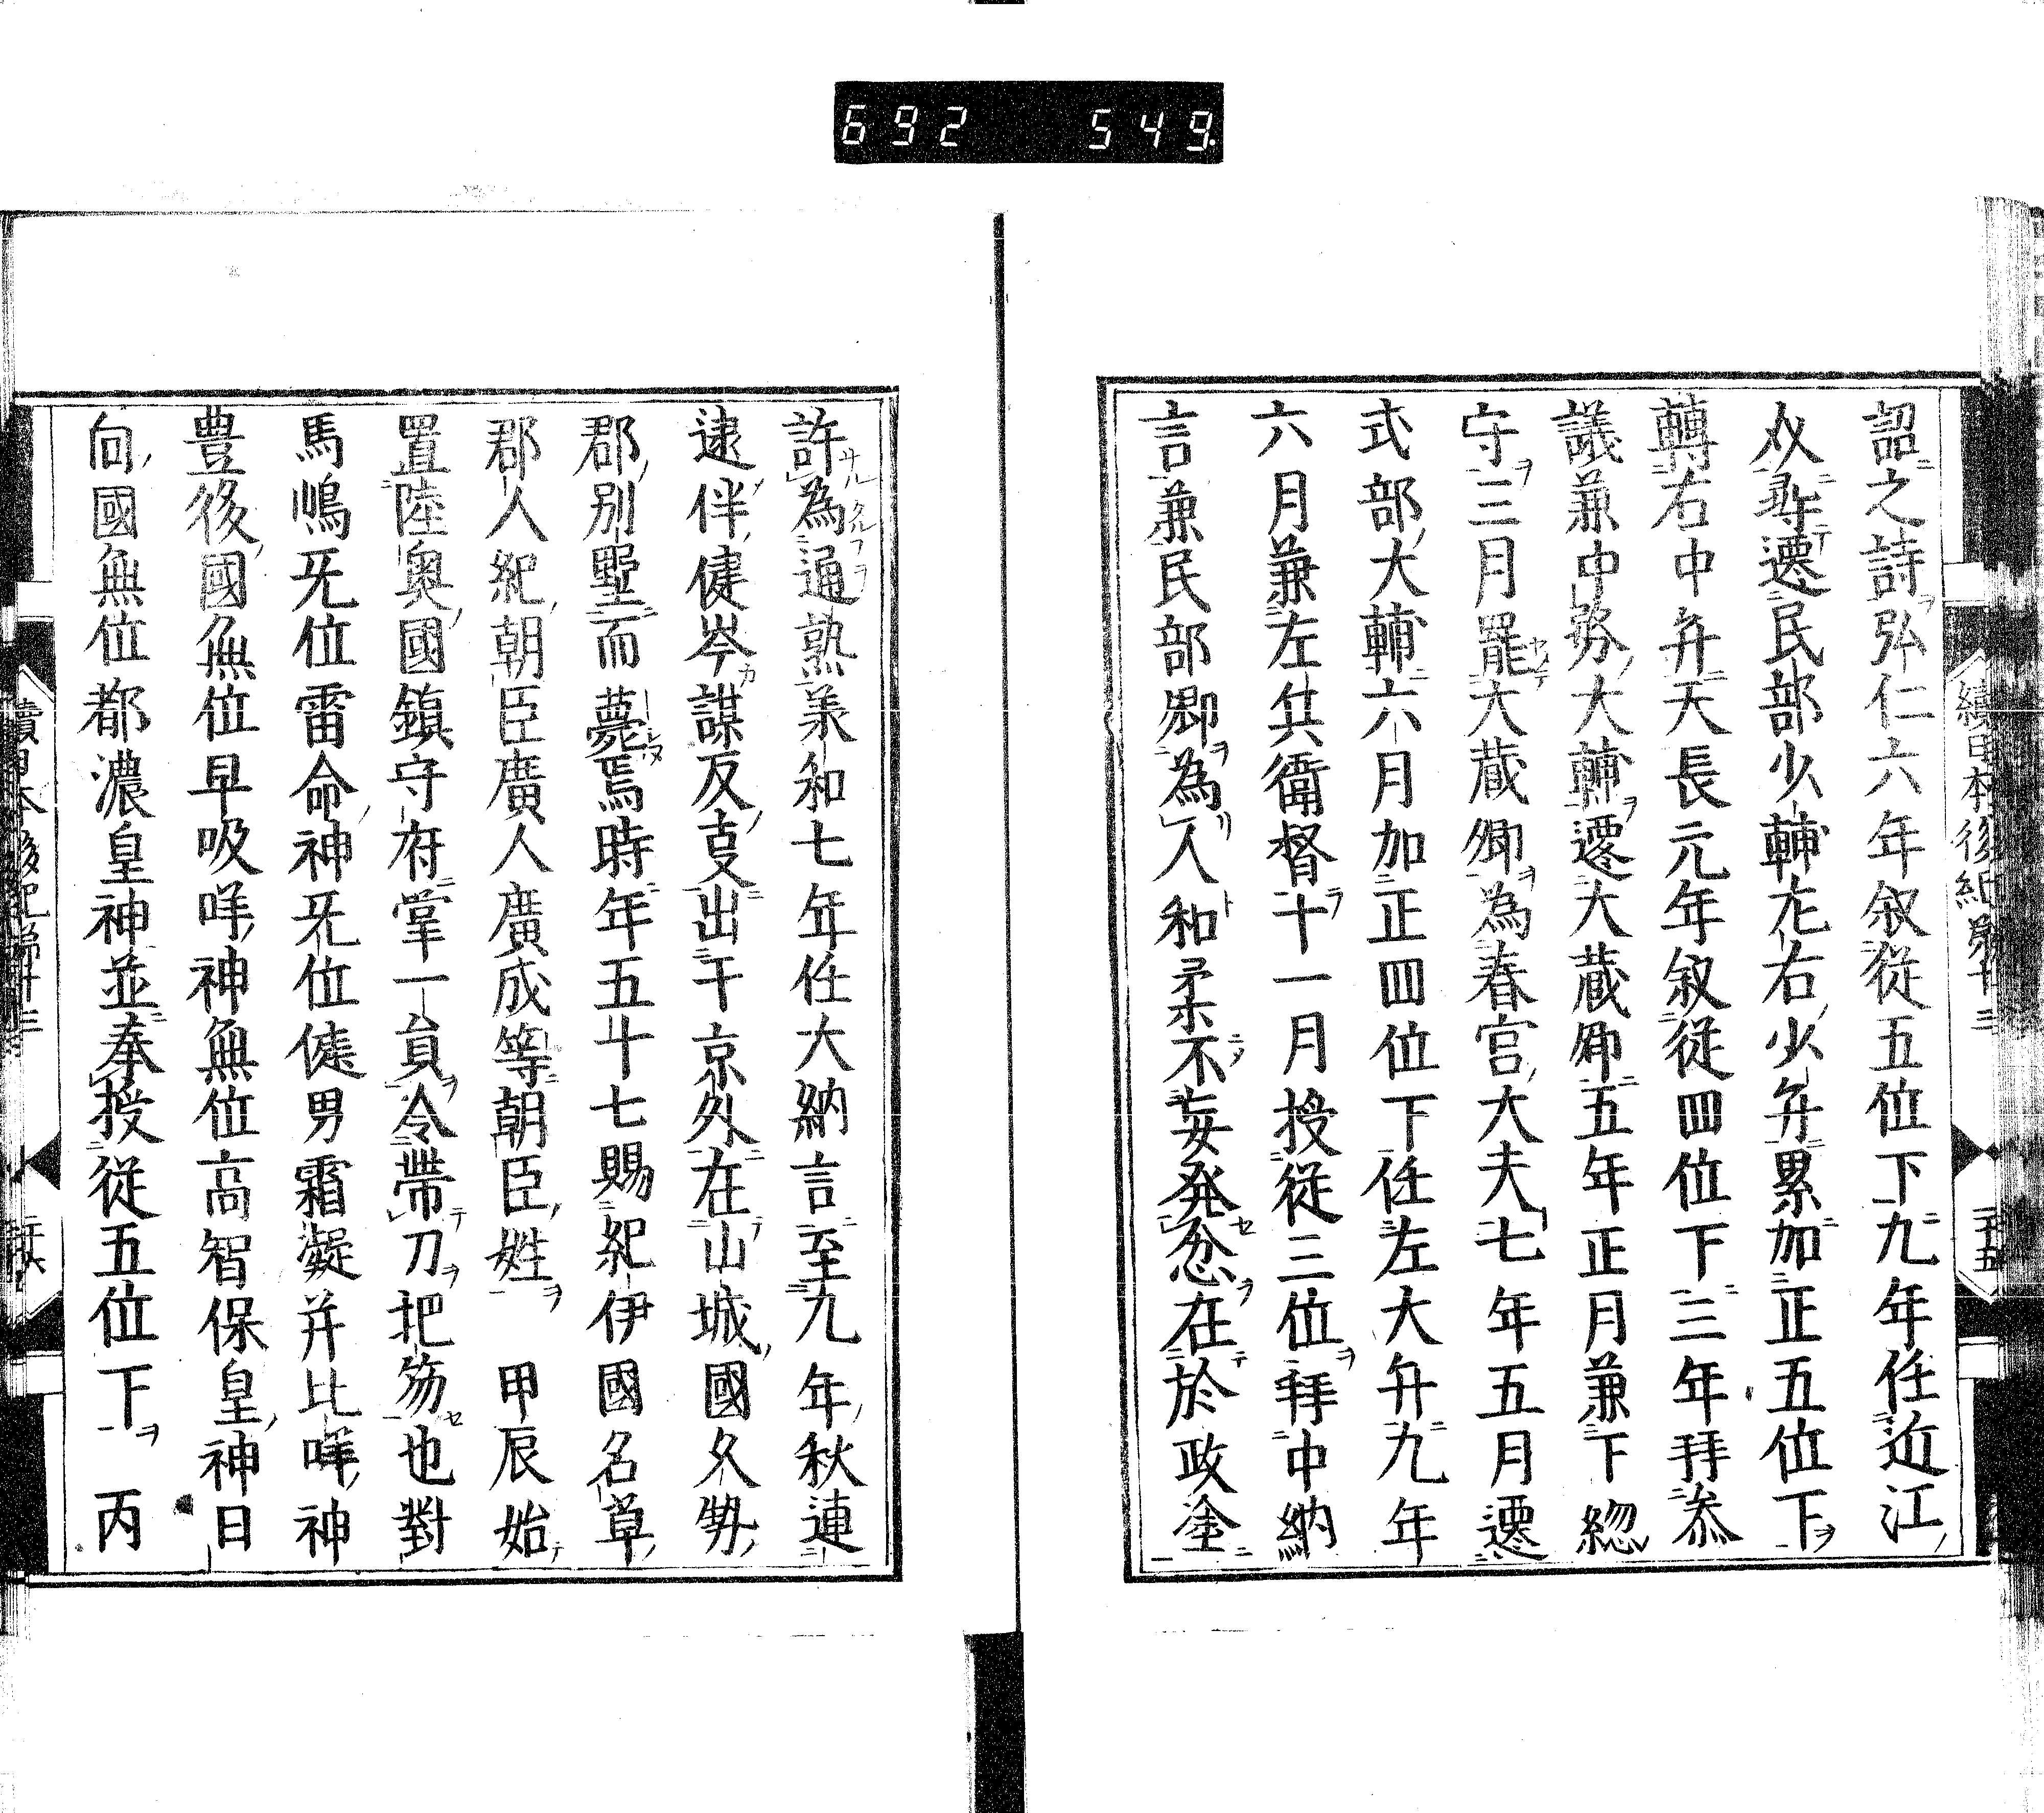 692 549
續日本後紀第十三
二十五
詔之詩弘仁六年叙從五位下九年任近江
尋遷民部少輔左右少弁累加正五位下
轉右中弁天長元年叙從四位下三年拜叅
議兼中務大輔遷大蔵卿五年正月兼下総
守三月罷大蔵卿為春宮大夫七年五月遷
式部大輔六月加正四位下任左大弁九年
六月兼左兵衛督十一月授從三位拜中納
言兼民部卿為人和柔不妄発忿在於政塗
許為通熟羕和七年任大納言至九年秋連
逮伴健岑謀反支出干京外在山城國久勢
郡別墅而薨焉時年五十七賜紀伊國名草
郡人紀朝臣廣人廣成等朝臣姓 甲辰始
置陸奥國鎮守府掌一負令帶刀把笏也對
馬嶋旡位雷命神旡位健男霜凝并比咩神
豊後國無位早吸咩神無位高智保皇神日
向國無位都濃皇神並奉授從五位下 丙
續日本後紀第十三
二十六